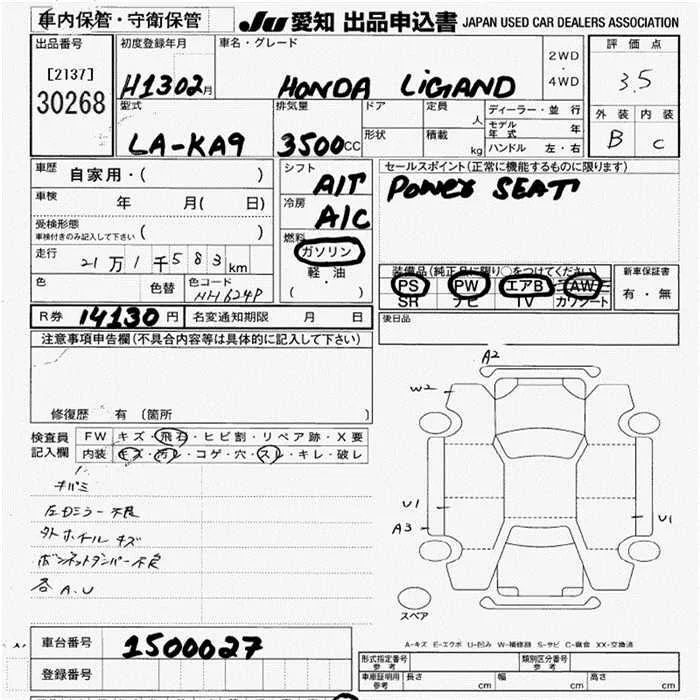 車内保管・守衛保管 JU 愛知 出品申込書 JAPAN USED CAR DEALERS ASSOCIATION
出品番号 初度登録年月 車名・グレード 2WD 評価点
[2137] H1302月 HONDA LiGAND ・ 3.5
30268 4WD
型式 排気量 ドア 定員 人 ディーラー・並行 外装 内装
LA-KA9 3500CC 形状 積載 kg モデル年式 年 B C
ハンドル 左・右
車歴 自家用・( ) シフト A/T セールスポイント(正常に機能するものに限ります)
車検 年 月( 日) 冷房 A/C Power SEAT
受検形態 ( )
車検付きのみ記入して下さい
燃料
走行 21万1千583km ガソリン 装備品(純正品に限り○をつけてください) 新車保証書
軽・油 PS PW エアB AW 有・無
色 色替 色コード NH624P ( ) SR ナビ TV カワシート
R券 14130円 名変通知期限 月 日 後日品
注意事項申告欄(不具合内容等は具体的に記入して下さい)
修復歴 有 (箇所 )
検査員 FW キズ・飛石・ヒビ割・リペア跡・X要
記入欄 内装 キズ・汚レ・コゲ・穴・スレ・キレ・破レ
左ドミラー不良
外ホイールキズ
ボンネットダンパー不良
各A.U
A2
W2
U1
A3
U1
スペア
A-キズ E-エクボ U-凹み W-補修跡 S-サビ C-腐食 XX-交換済
車台番号 1500027
登録番号
形式指定番号 参考 類別区分番号 参考
車庫証明用 参考 長さ cm 幅 cm 高さ cm